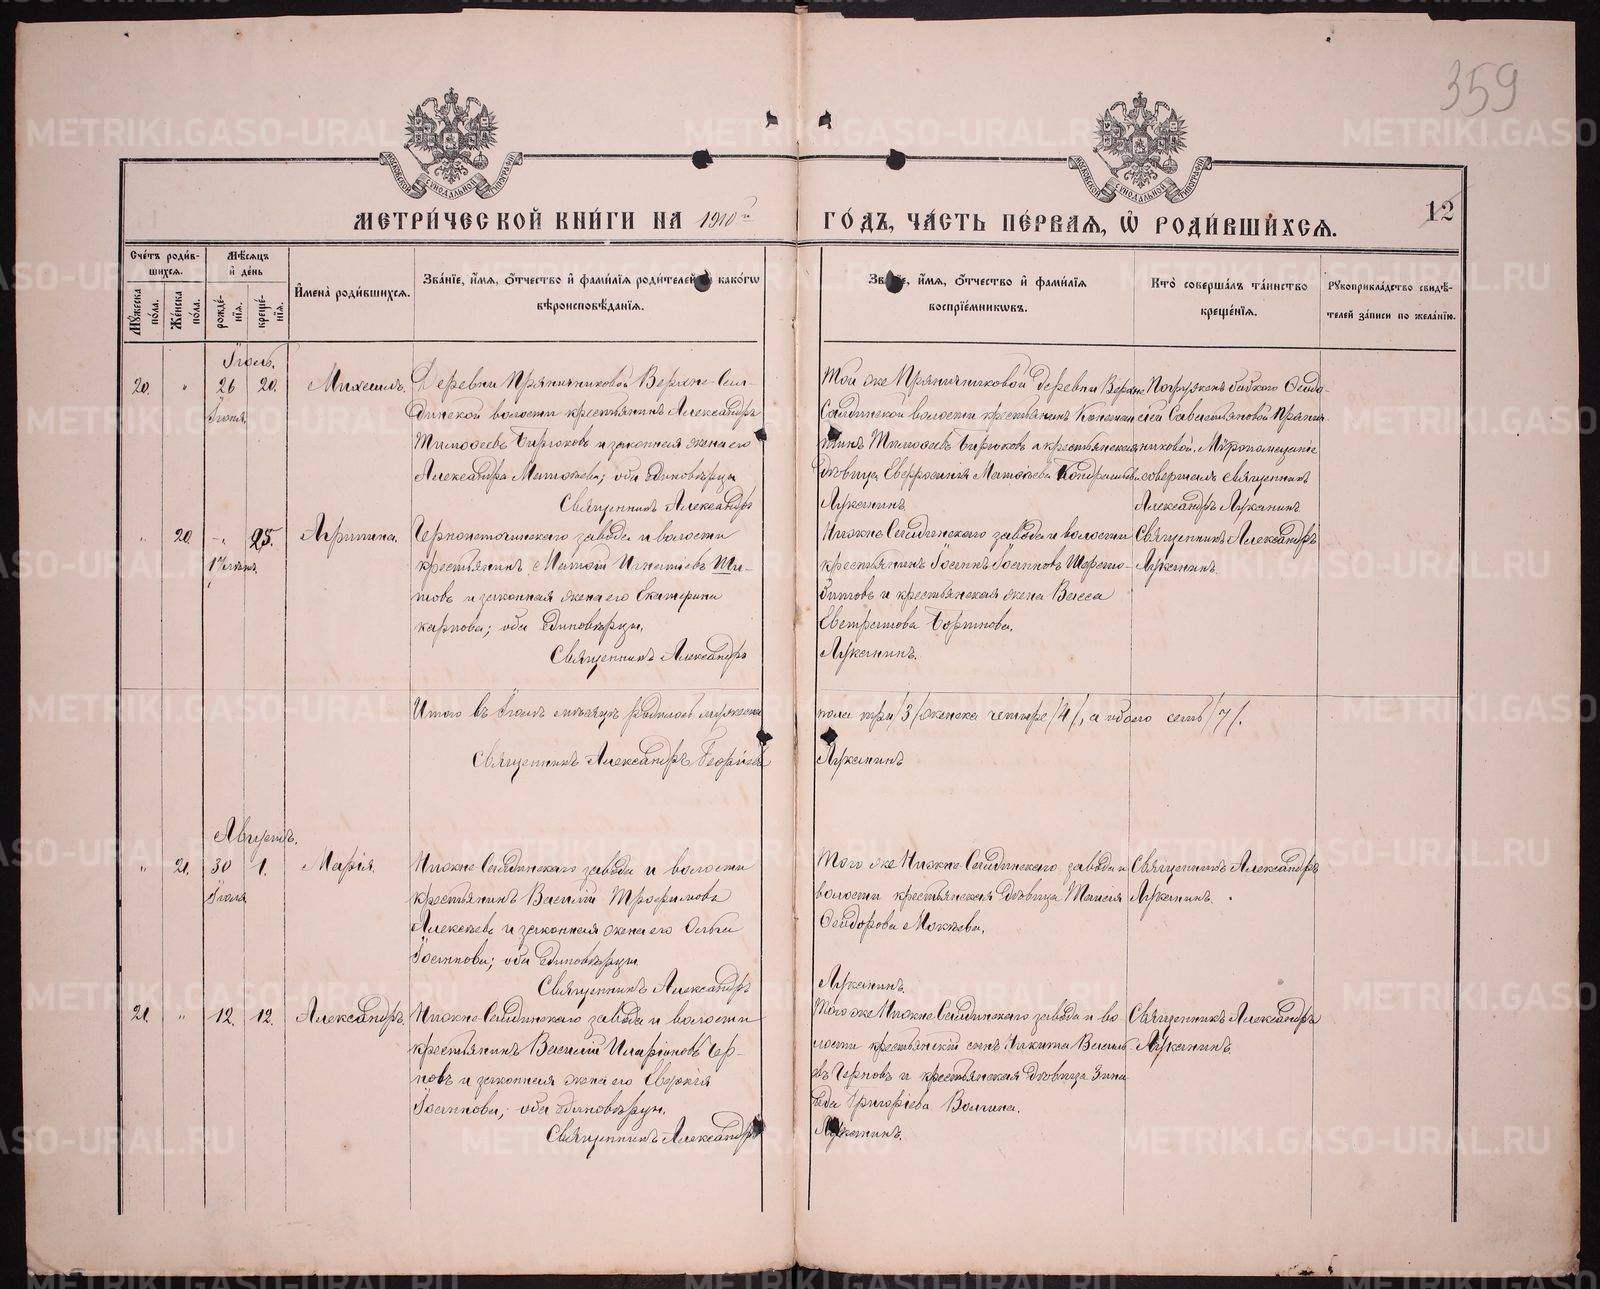 359
12
МЕТРИ́ЧЕСКОЙ КНИ́ГИ НА 1910й ГО́ДЪ, ЧА́СТЬ ПЕ́РВАЯ, Ѡ҆ РОДИ́ВШИХСЯ.
Сче́тъ роди́в-
шихся.
Мꙋ́жеска по́ла.
Же́нска по́ла.
Мѣ́сяцъ
и҆ де́нь
рожде́-нїя.
креще́-нїя.
И҆мена̀ роди́вшихся.
Зва́нїе, и҆́мя, ѻ҆́тчество и҆ фами́лїя роди́телей како́гѡ
вѣроисповѣ́данїя.
и҆́мя, ѻ҆́тчество и҆ фами́лїя
воспрїе́мниковъ.
Кто̀ соверша́лъ та́инство
креще́нїя.
Рꙋкоприкла́дство свидѣ́-
телей за́писи по жела́нїю.
Іюль.
20. " 26 20. Михаилъ.
Іюня
Деревни Пряничниковой Верхне-Сал-
динской волости крестьянинъ Александръ
Тимофеевъ Бирюковъ и законная жена его
Александра Матфеева; оба единовѣрцы
Священникъ Александръ
Той же Пряничниковой деревни Верхне
Салдинской волости крестьянинъ
Тимофеевъ Бирюковъ и крестьянская
дѣвица Евфросинія Матфеева
Луканинъ.
Погруженъ бабкою
Савастьяновой Прянич-
никовой. Мѵропомазаніе
совершалъ священникъ
Александръ Луканинъ
" 20 -"- 25. Агрипина.
Черноисточинскаго завода и волости
крестьянинъ Матѳій Игнатіевъ Ши-
товъ и законная жена его Екатерина
Карпова; оба единовѣрцы.
Священникъ Александръ
Нижне-Салдинскаго завода и волости
крестьянинъ Іоаннъ Іоанновъ
и крестьянская жена Васса
Луканинъ.
Священникъ Александръ
Луканинъ.
Итого въ Іюлѣ мѣсяцѣ родилось мужеска
пола три /3/ женска четыре /4/, а обоего семь /7/.
Священникъ Александръ Георгіевъ
Луканинъ
Августъ.
" 21. 30 1. Марія.
Іюля
Нижне-Салдинскаго завода и волости
крестьянинъ Василій Трофимовъ
Алексѣевъ и законная жена его Ольга
Іоаннова; оба единовѣрцы
Священникъ Александръ
Того же Нижне-Салдинскаго завода и
волости крестьянская дѣвица Таисія
Ѳеодорова Мокѣева.
Луканинъ.
Священникъ Александръ
Луканинъ.
21. " 12. 12. Александръ.
Нижне-Салдинскаго завода и волости
крестьянинъ Василій Иларіоновъ Чер-
новъ и законная жена его Евдокія
Іоаннова; оба единовѣрцы.
Священникъ Александръ
Того же Нижне-Салдинскаго завода и во-
лости крестьянскій сынъ Никита Василь-
евъ Черновъ и крестьянская дѣвица Зина-
ида Григоріева Волгина.
Луканинъ.
Священникъ Александръ
Луканинъ.
METRIKI.GASO-URAL.RU